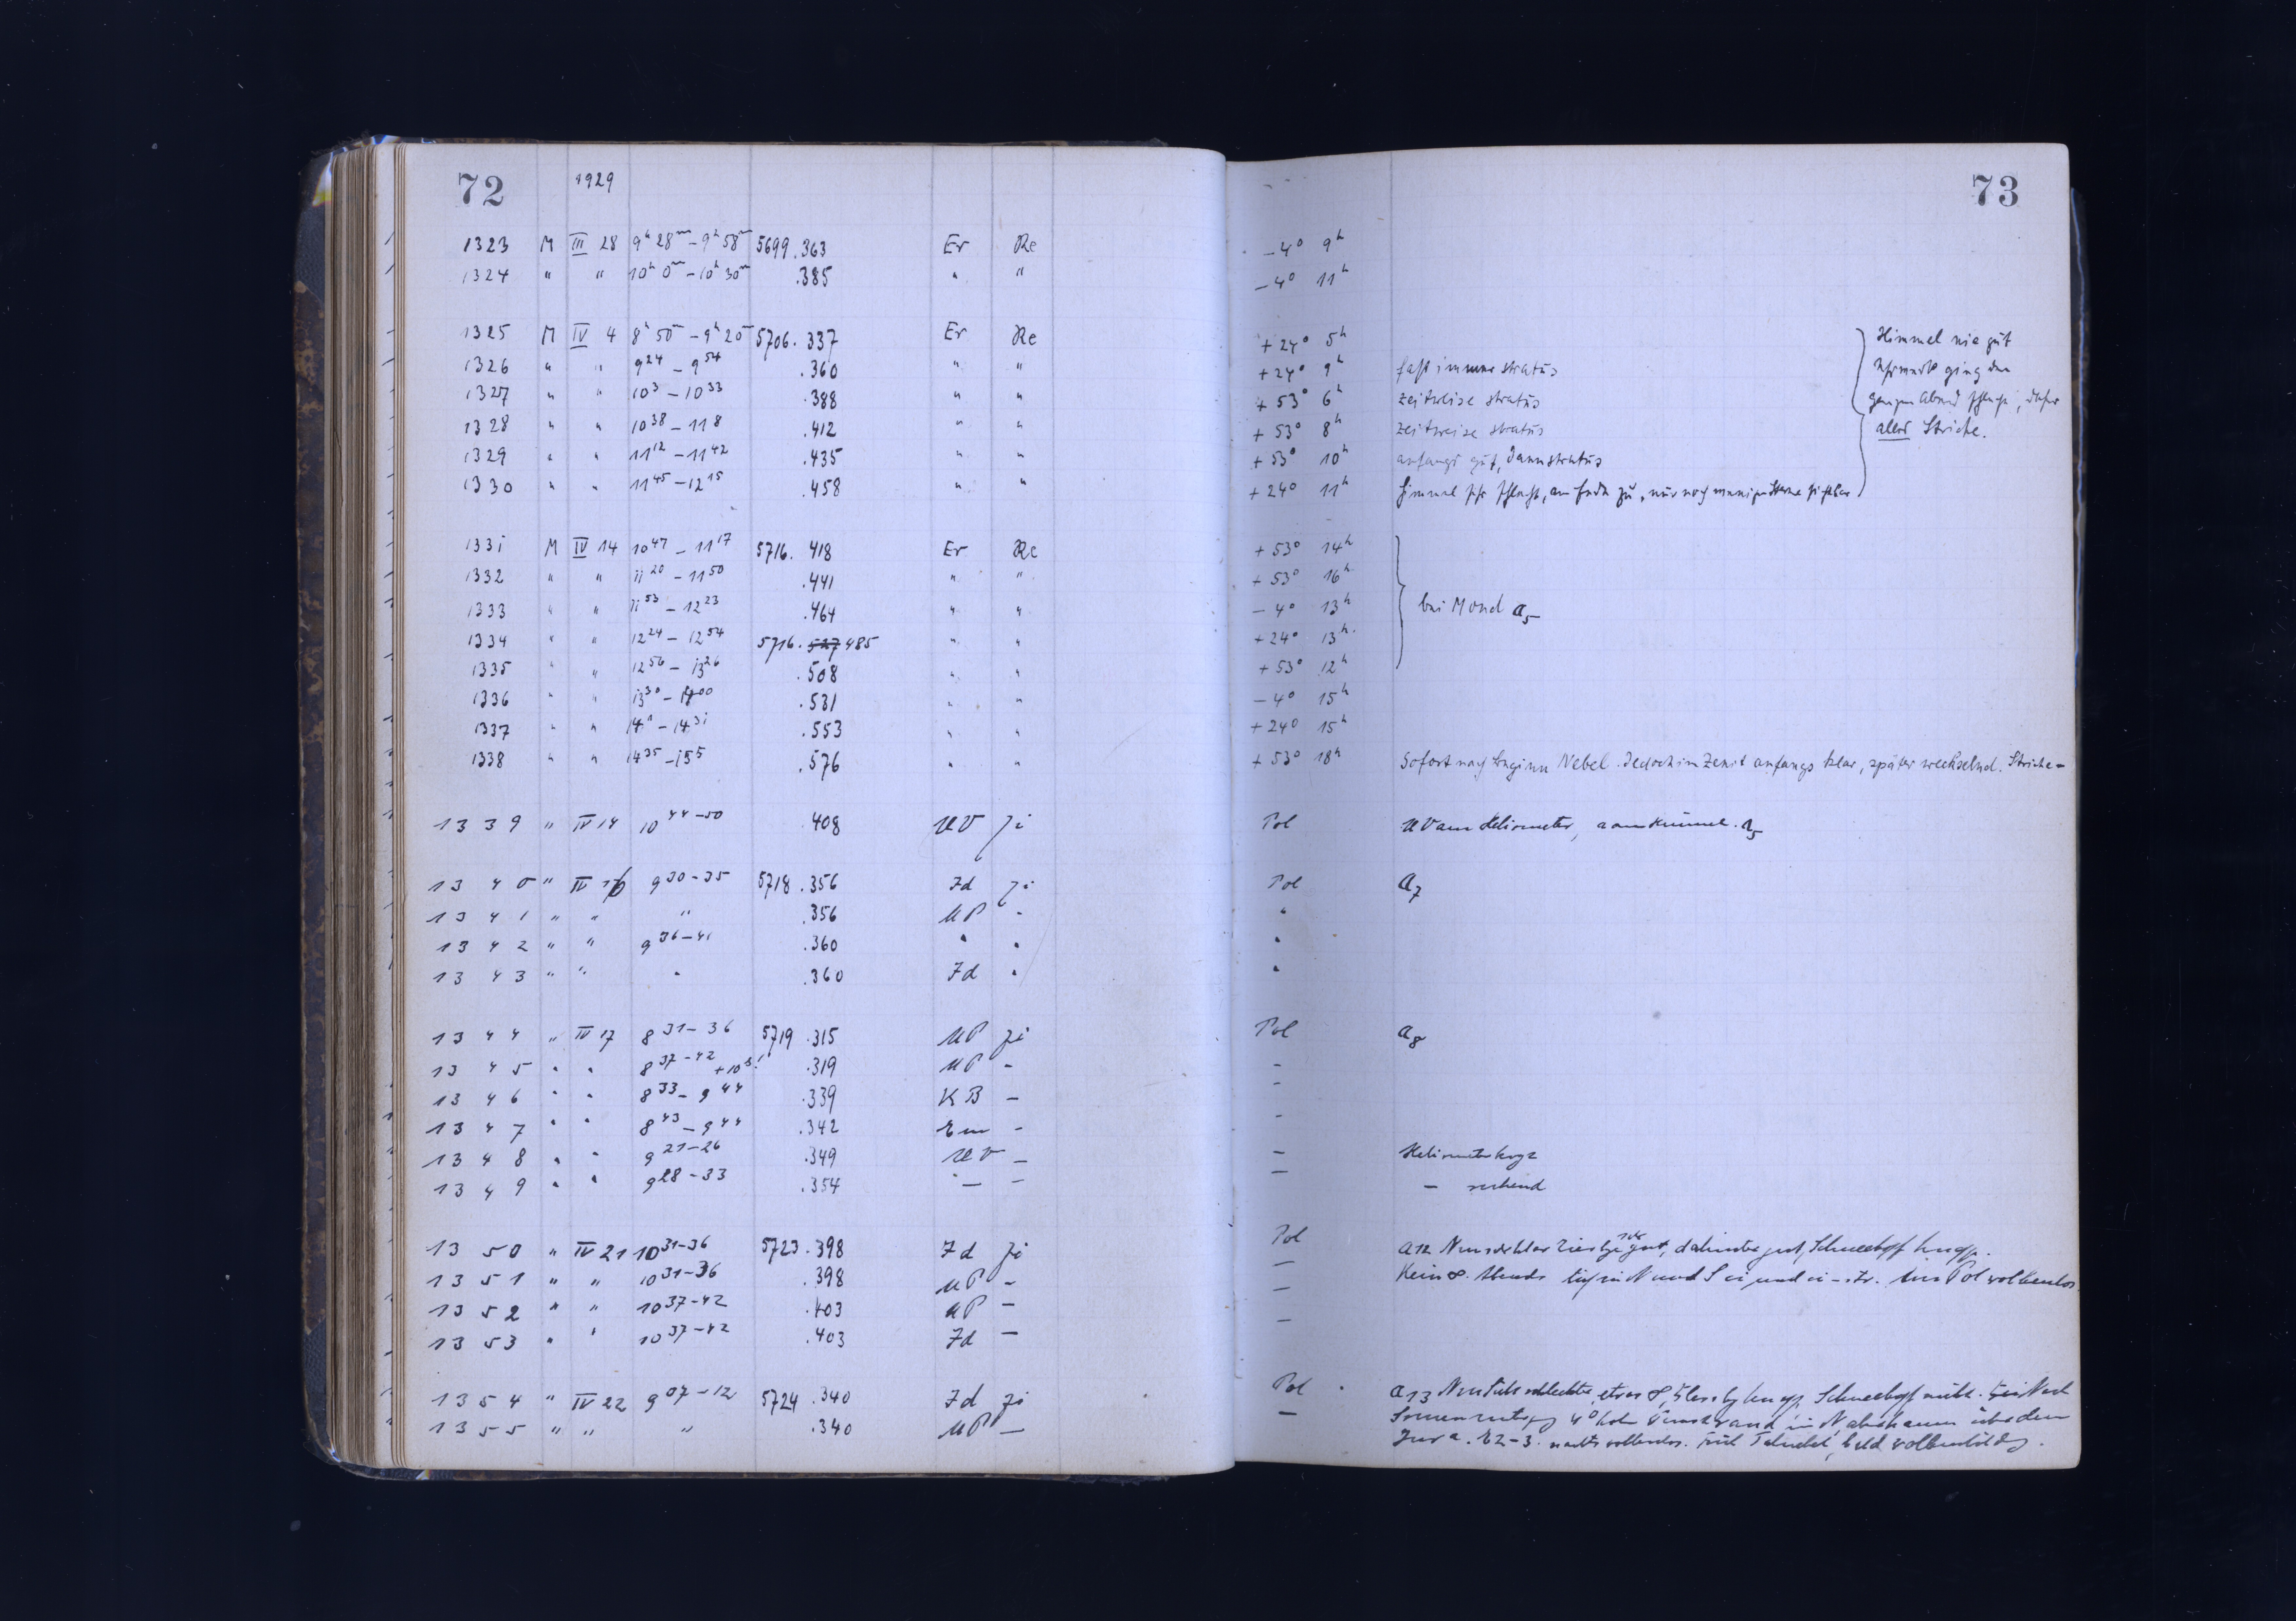 72 1929
1323 M III 28 9h 28m – 9h 58m 5699.363 Er Re
1324 " " 10h 0m – 10h 30m .385 " "
1325 M IV 4 8h 50m – 9h 20m 5706.337 Er Re
1326 " " 9 24 – 9 54 .360 " "
1327 " " 10 3 – 10 33 .388 " "
1328 " " 10 38 – 11 8 .412 " "
1329 " " 11 12 – 11 42 .435 " "
1330 " " 11 45 – 12 15 .458 " "
1331 M IV 14 10 47 – 11 17 5716.418 Er Re
1332 " " 11 20 – 11 50 .441 " "
1333 " " 11 53 – 12 23 .464 " "
1334 " " 12 24 – 12 54 5716.527 485 " "
1335 " " 12 56 – 13 26 .508 " "
1336 " " 13 30 – 14 00 .531 " "
1337 " " 14 1 – 14 31 .553 " "
1338 " " 14 35 – 15 5 .576 " "
1339 " IV 14 10 44–50 .408 UV Ji
1340 " IV 16 9 30–35 5718.356 Zd Ji
1341 " " " .356 UP "
1342 " " 9 36–41 .360 " "
1343 " " " .360 Zd "
1344 " IV 17 8 31–36 5719.315 UP Ji
1345 " " 8 37–42 +10s! .319 UP –
1346 " " 8 33 – 9 44 .339 KB –
1347 " " 8 43 – 9 44 .342 Em –
1348 " " 9 21–26 .349 UV –
1349 " " 9 28–33 .354 – –
1350 " IV 21 10 31–36 5723.398 Zd Ji
1351 " " 10 31–36 .398 UP –
1352 " " 10 37–42 .403 UP –
1353 " " 10 37–42 .403 Zd –
1354 " IV 22 9 07–12 5724.340 Zd Ji
1355 " " " .340 UP –
73
–4° 9h
–4° 11h
+24° 5h
+24° 9h fast immer stratus
+53° 6h zeitweise stratus
+53° 8h zeitweise stratus
+53° 10h anfangs gut, dann stratus
+24° 11h Himmel sehr schlecht, am Ende zu, nur noch wenige Sterne sichtbar
Himmel nie gut
Uhrwerk ging den
ganzen Abend schlecht, daher
alles Striche.
+53° 14h
+53° 16h
–4° 13h bei Mond a5
+24° 13h
+53° 12h
–4° 15h
+24° 15h
+53° 18h Sofort nach Beginn Nebel. Jedoch im Zenit anfangs klar, später wechselnd. Striche –
Pol UV am Heliometer, a5
Pol a7
"
"
"
Pol a8
–
–
–
–
– – ruhend
Pol a12 gut, dahinter gut,
– Kein und bis Pol wolkenlos.
–
–
Pol a13 etwas
– 4° in N über dem
Jura. nachts wolkenlos.